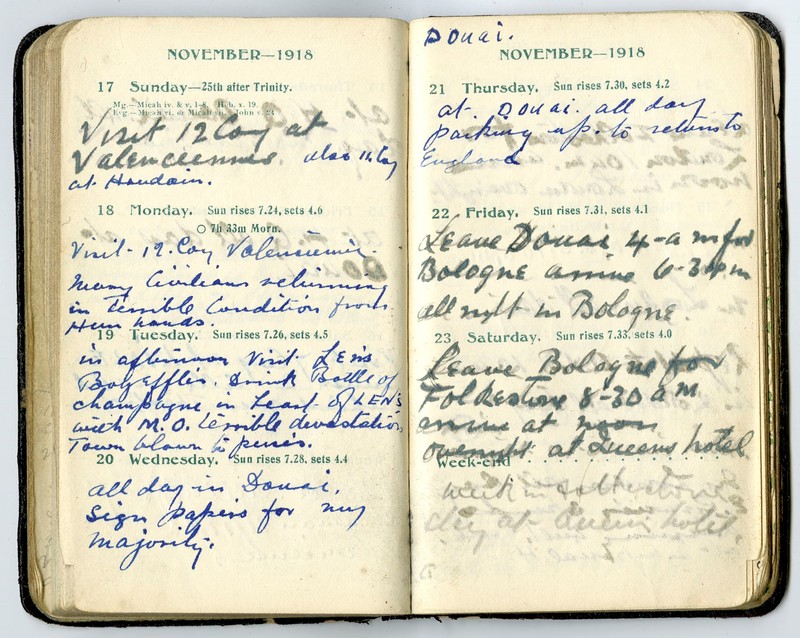 NOVEMBER—1918
17 Sunday—25th after Trinity.
Mg.—Micah iv. & v. 1-8. Heb. x. 19.
Visit 12 Coy at
Valenciennes. also 11 Coy
at Houdain.
18 Monday. Sun rises 7.24, sets 4.6
7h 33m Morn.
Visit 12 Coy Valenciennes
many Civilians returning
in Terrible Condition from
Hun hands.
19 Tuesday. Sun rises 7.26, sets 4.5
in afternoon Visit Lens
Drink Bottle of
champagne in heart of LENS
with M.O. terrible devastation
Town blown to pieces.
20 Wednesday. Sun rises 7.28, sets 4.4
all day in Douai.
Sign papers for my
majority.
Douai.
NOVEMBER—1918
21 Thursday. Sun rises 7.30, sets 4.2
at Douai. all day
packing up. to return to
England
22 Friday. Sun rises 7.31, sets 4.1
Leave Douai 4-a m for
Bologne arrive 6-30 p.m
all night in Bologne.
23 Saturday. Sun rises 7.33, sets 4.0
Leave Bologne for
Folkestone 8-30 a m
arrive at noon
overnight at Queens hotel
Week-end
day at Queens hotel.